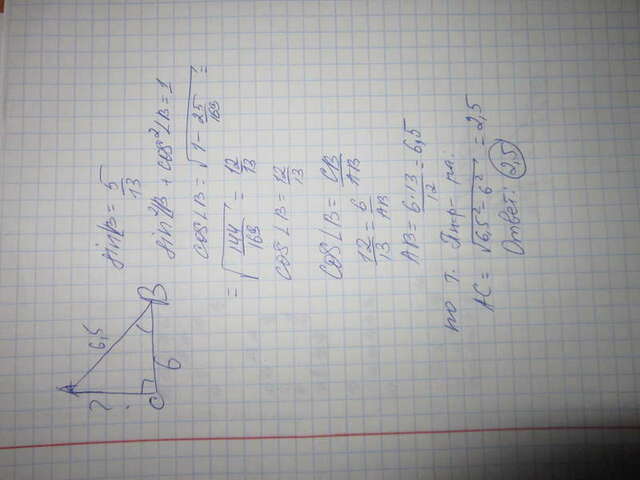 A
?
6,5
C
6
B
sin∠B = 5/13
sin²∠B + cos²∠B = 1
cos∠B = √(1 - 25/169) =
= √(144/169) = 12/13
cos∠B = 12/13
cos∠B = CB/AB
12/13 = 6/AB
AB = 6·13/12 = 6,5
по т. Пифагора:
AC = √(6,5² - 6²) = 2,5
Ответ: 2,5